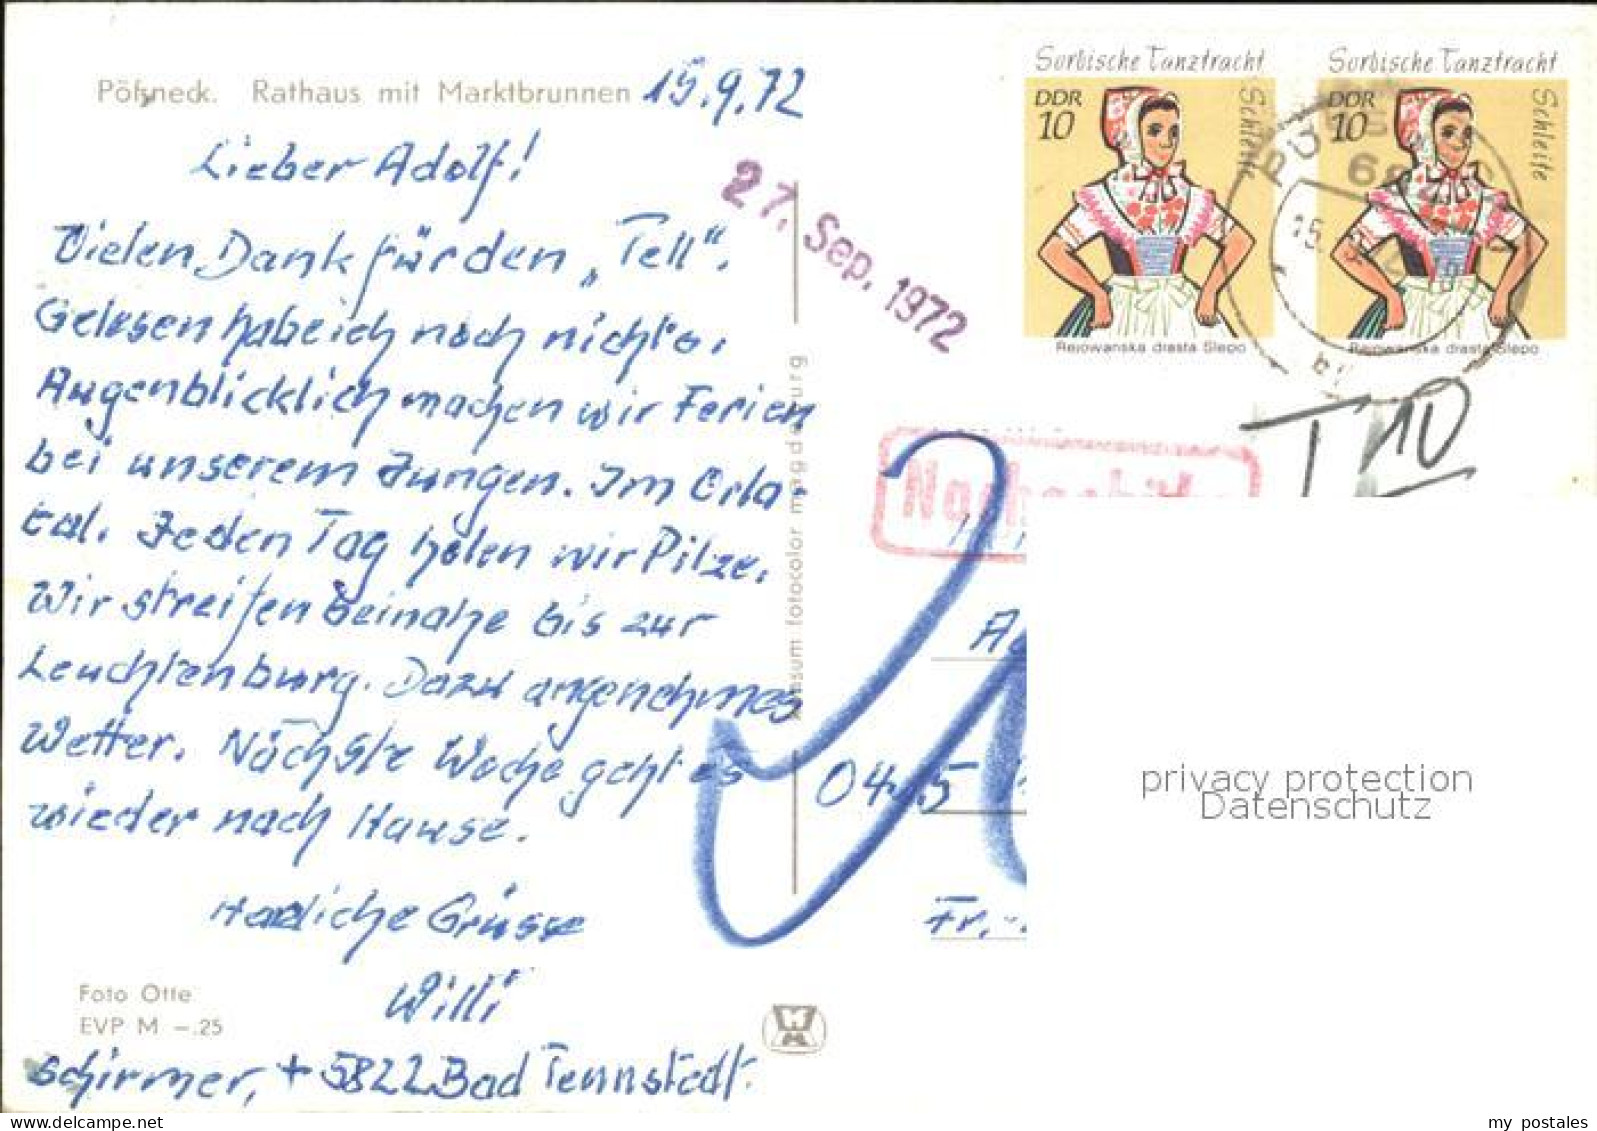 Pößneck. Rathaus mit Marktbrunnen 15.9.72
Lieber Adolf!
Vielen Dank für den „Tell".
Gelesen habe ich noch nichts.
Augenblicklich machen wir Ferien
bei unserem Jungen. Im Orla-
tal. Jeden Tag holen wir Pilze.
Wir streifen beinahe bis zur
Leuchtenburg. Dazu angenehmes
Wetter. Nächste Woche geht es
wieder nach Hause.
Herzliche Grüsse
Willi
Foto Otte
EVP M –.25
Schirmer, + 5822 Bad Tennstedt.
27. Sep. 1972
fotocolor magdeburg
Sorbische Tanztracht
Schleife
DDR
10
Rejowanska drasta Slepo
Sorbische Tanztracht
Schleife
DDR
10
Rejowanska drasta Slepo
15.
T 10
Fr.
privacy protection
Datenschutz
my postales